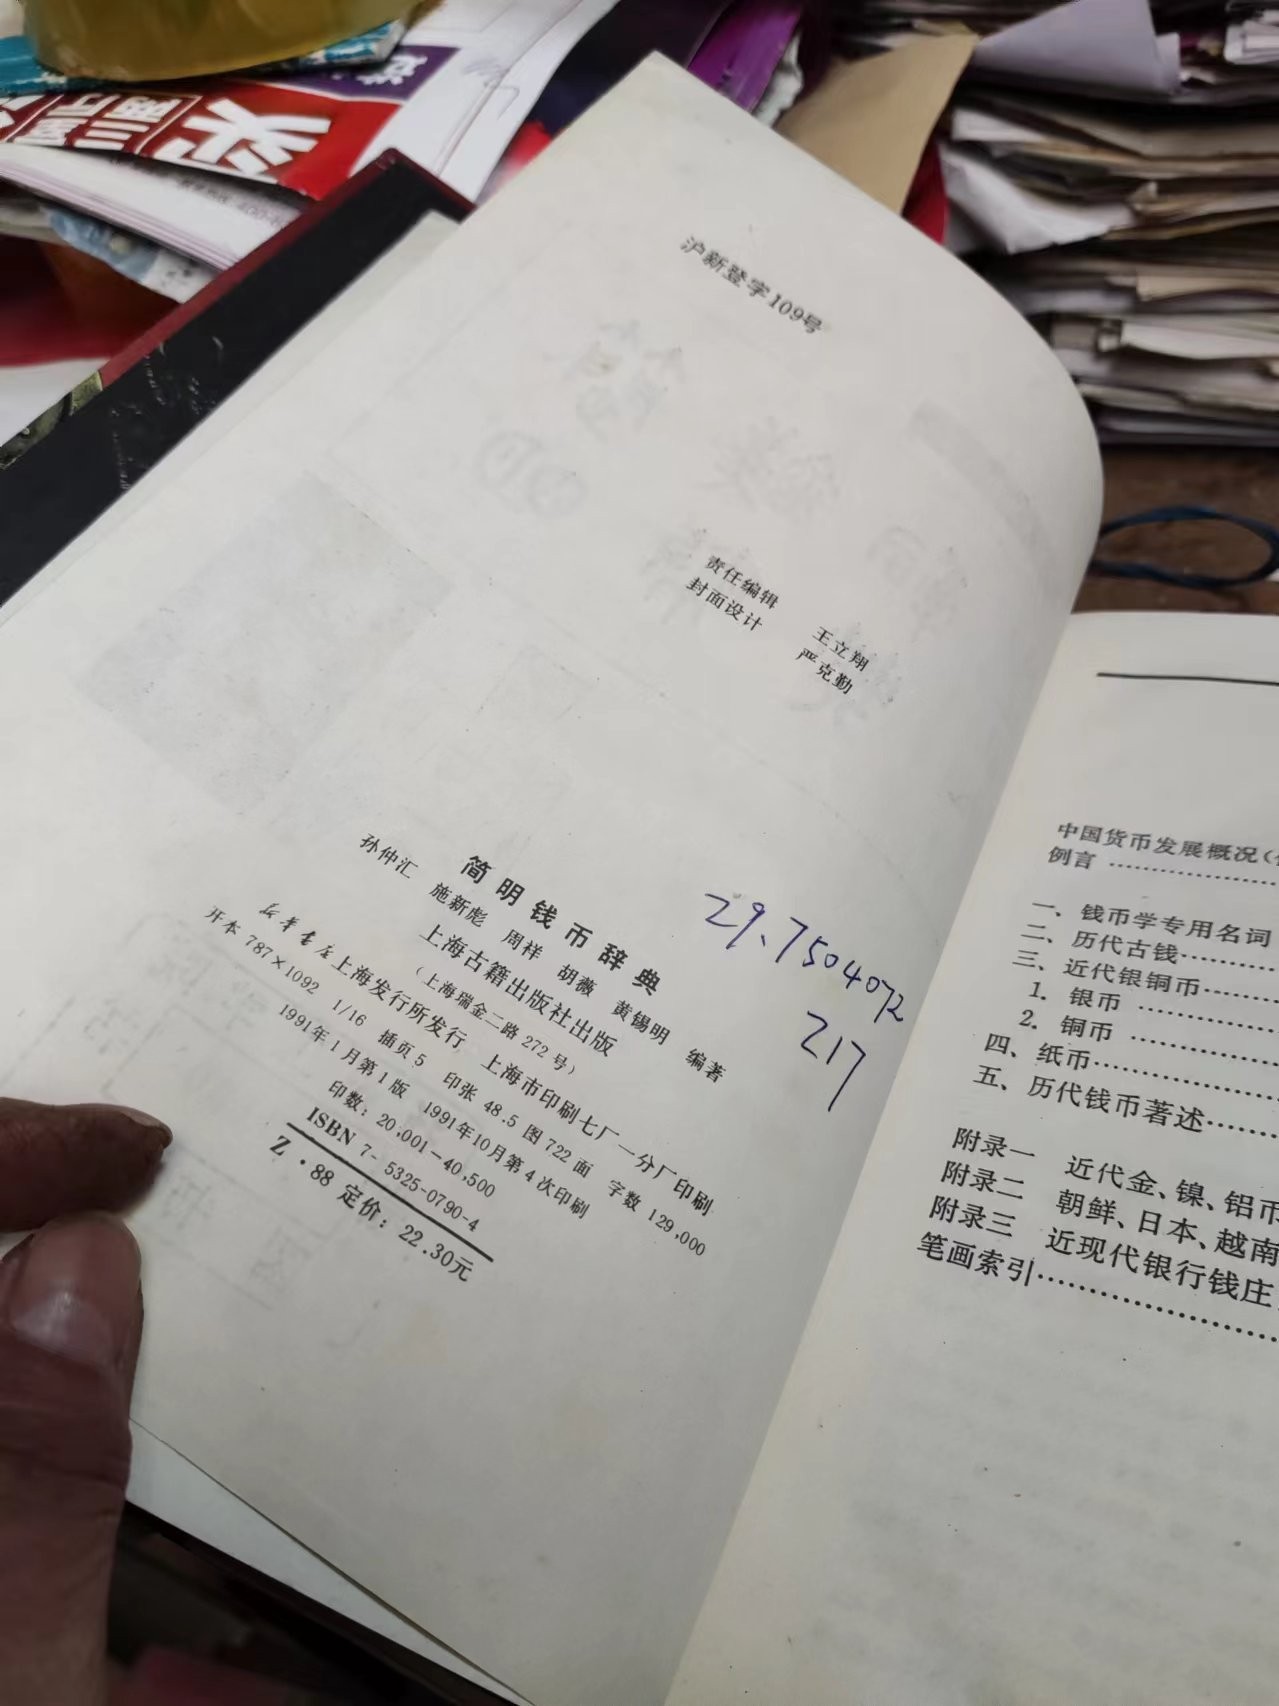 沪新登字109号
责任编辑 王立翔
封面设计 严克勤
简明钱币辞典
孙仲汇 施新彪 周祥 胡薇 黄锡明 编著
上海古籍出版社出版
(上海瑞金二路272号)
新华书店上海发行所发行 上海市印刷七厂一分厂印刷
开本 787×1092 1/16 插页5 印张 48.5 图722面 字数 129,000
1991年1月第1版 1991年10月第4次印刷
印数: 20,001—40,500
ISBN 7-5325-0790-4
Z·88 定价: 22.30元
29、7504072
217
中国货币发展概况(
例言
一、钱币学专用名词
二、历代古钱
三、近代银铜币
1. 银币
2. 铜币
四、纸币
五、历代钱币著述
附录一 近代金、镍、铝币
附录二 朝鲜、日本、越南
附录三 近现代银行钱庄
笔画索引